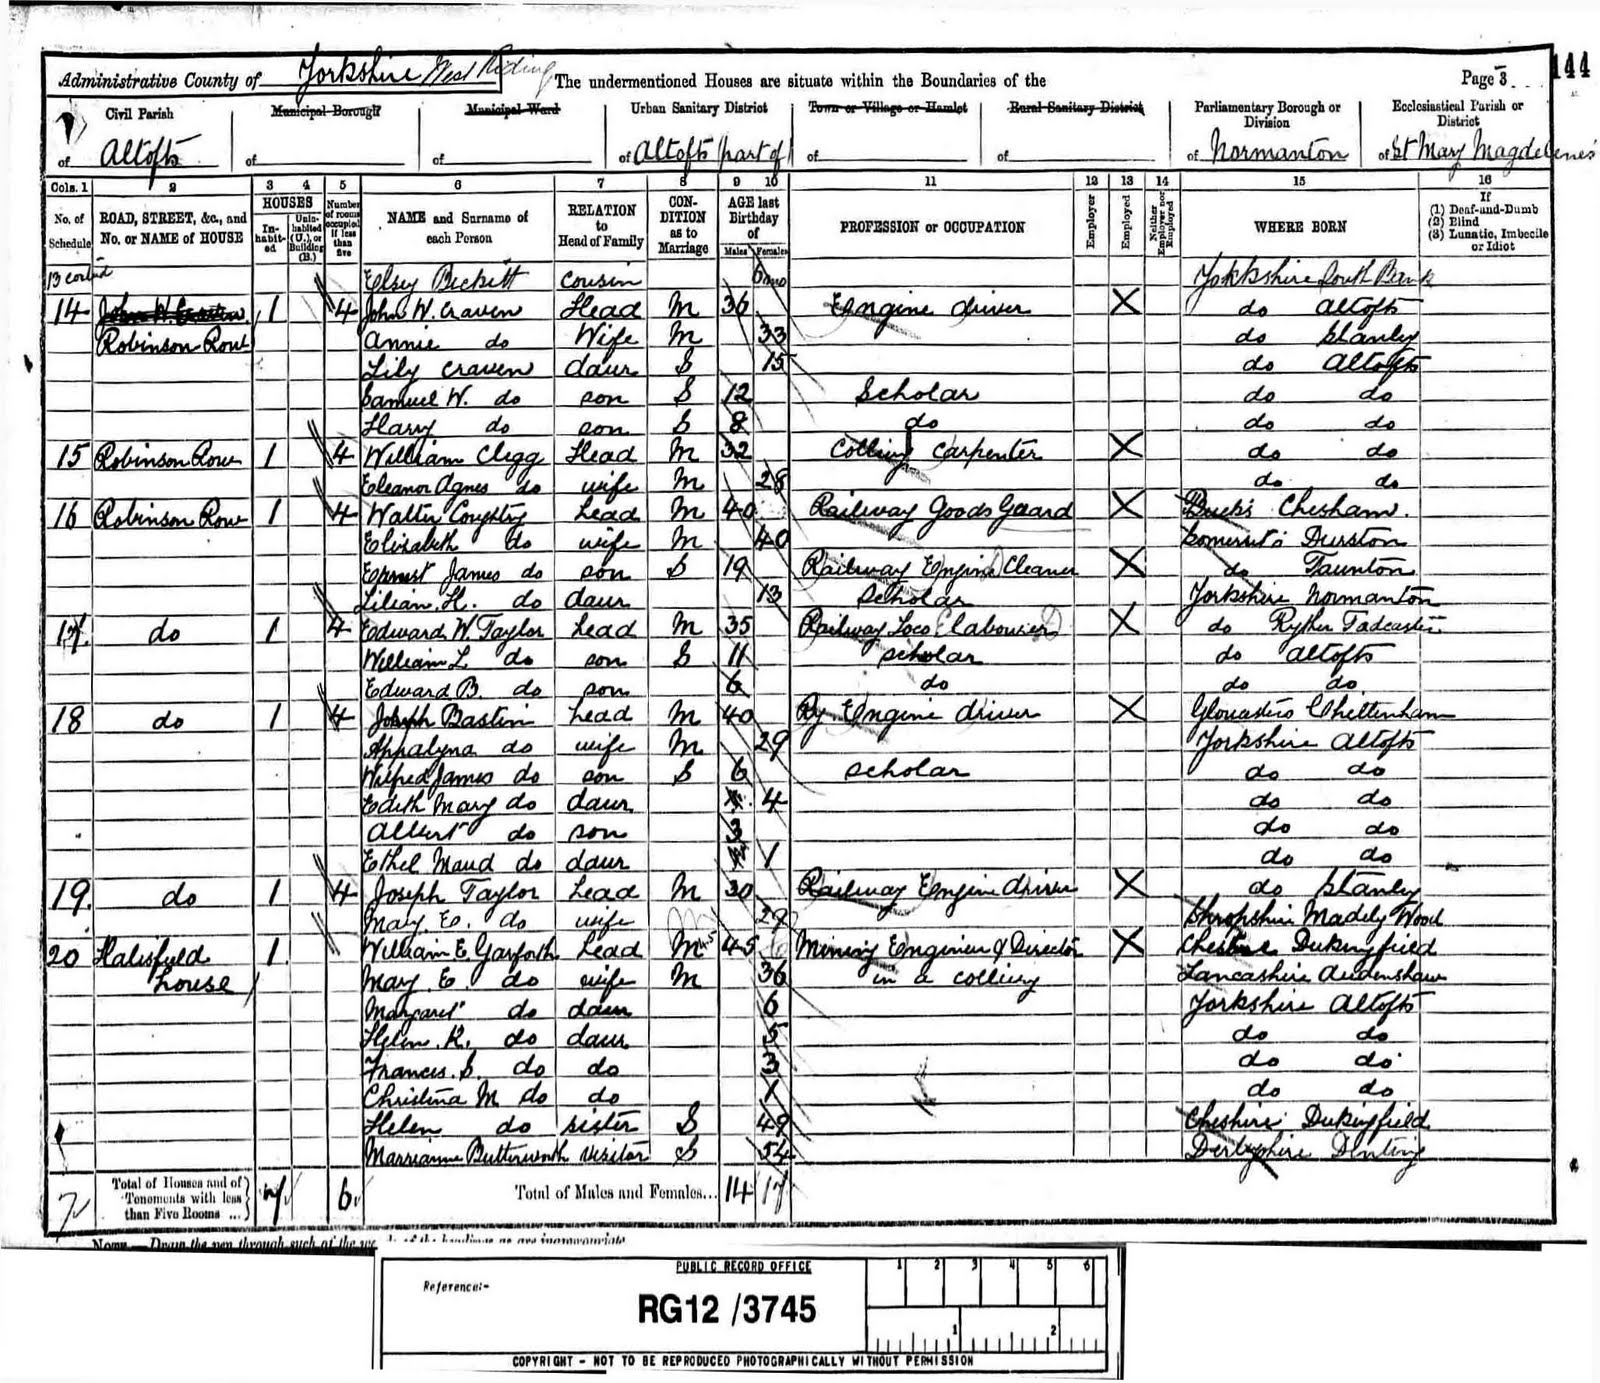 144
Administrative County of Yorkshire West Riding The undermentioned Houses are situate within the Boundaries of the Page 3
Civil Parish Municipal Borough Municipal Ward Urban Sanitary District Town or Village or Hamlet Rural Sanitary District Parliamentary Borough or Division Ecclesiastical Parish or District
of Altofts of of of Altofts part of of of of Normanton of St Mary Magdelenes
Cols. 1 2 3 4 5 6 7 8 9 10 11 12 13 14 15 16
No. of Schedule ROAD, STREET, &c., and No. or NAME of HOUSE HOUSES Inhabited Uninhabited (U.), or Building (B.) Number of rooms occupied if less than five NAME and Surname of each Person RELATION to Head of Family CONDITION as to Marriage AGE last Birthday of Males Females PROFESSION or OCCUPATION Employer Employed Neither Employer nor Employed WHERE BORN If (1) Deaf-and-Dumb (2) Blind (3) Lunatic, Imbecile or Idiot
13 contd Elsey Beckett cousin 6mo Yorkshire South Bank
14 John W. Craven 1 4 John W. Craven Head M 36 Engine driver X do Altofts
Robinson Row Annie do Wife M 33 do Stanley
Lily Craven daur S 15 do Altofts
Samuel W. do son S 12 Scholar do do
Harry do son S 8 do do do
15 Robinson Row 1 4 William Clegg Head M 32 Colliery Carpenter X do do
Eleanor Agnes do wife M 28 do do
16 Robinson Row 1 4 Walter Coughtry Head M 40 Railway Goods Guard X Buck's Chesham.
Elizabeth do wife M 40 Somerset's Durston
Ernest James do son S 19 Railway Engine Cleaner X do Taunton
Lilian H. do daur 13 Scholar Yorkshire Normanton
17 do 1 4 Edward W. Taylor Head M 35 Railway Loco labourer X do Ryther Tadcaster
William L do son S 11 scholar do Altofts
Edward B. do son 6 do do do
18 do 1 4 Joseph Bastin Head M 40 Ry Engine driver X Gloucesters Cheltenham
Appalyna do wife M 29 Yorkshire Altofts
Wilfred James do son S 6 scholar do do
Edith Mary do daur 4 do do
Albert do son 3 do do
Ethel Maud do daur 1 do do
19. do 1 4 Joseph Taylor Head M 30 Railway Engine driver X do Stanley
Mary. E. do wife M 29 Shropshire Madely Wood
20 Halisfield 1. William E Garforth Head M 45 Mining Engineer & Director X Cheshire Dukingfield
house Mary. E do wife M 36 in a colliery Lancashire Audenshaw
Margaret do daur 6 Yorkshire Altofts
Helen. K. do daur 5 do do
Frances. S. do do 3 do do
Christina M do do 1 do do
Helen do sister S 49 Cheshire Dukingfield
Marrianne Butterworth visitor S 54 Derbyshire Dinting
7 Total of Houses and of Tenements with less than Five Rooms ... 7 6 Total of Males and Females... 14 17
NOTE.—Draw the pen through such of the words of the headings as are inappropriate.
PUBLIC RECORD OFFICE 1 2 3 4 5 6
Reference:-
RG12 /3745
1 2
COPYRIGHT - NOT TO BE REPRODUCED PHOTOGRAPHICALLY WITHOUT PERMISSION